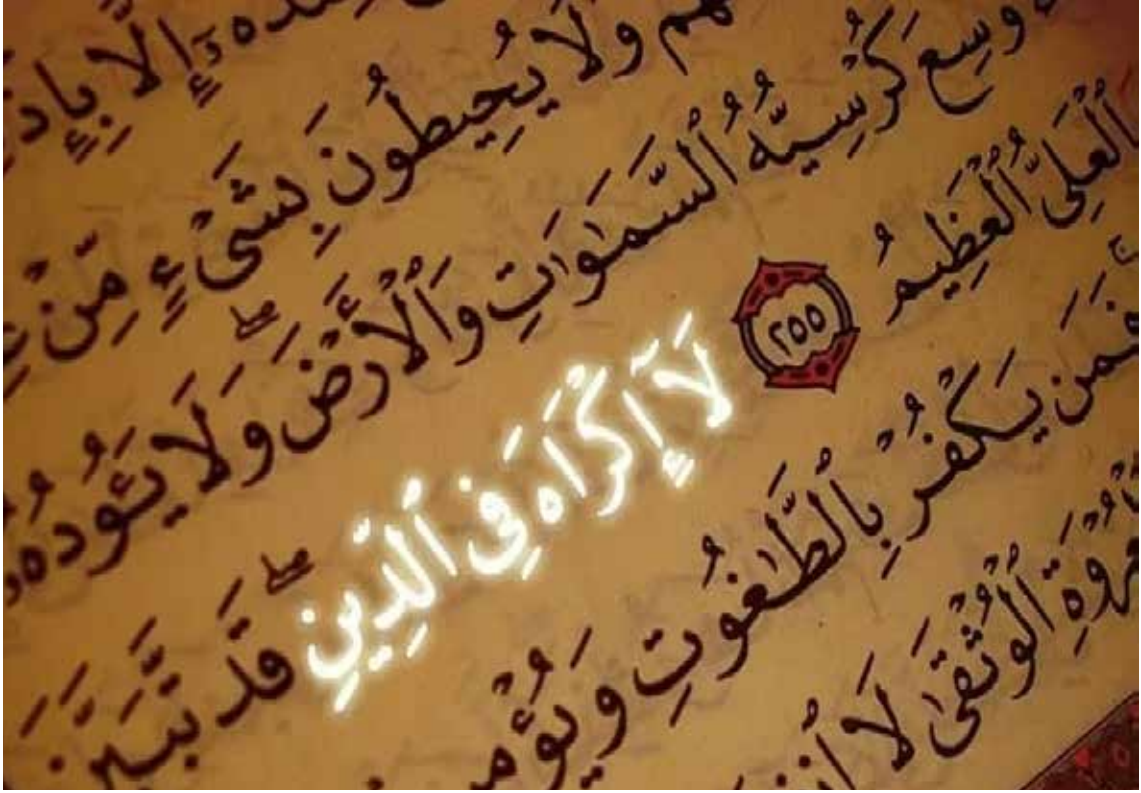 إِلَّا
وَلَا يُحِيطُونَ بِشَىْءٍ مِّنْ
وَسِعَ كُرْسِيُّهُ ٱلسَّمَٰوَٰتِ وَٱلْأَرْضَ ۖ وَلَا يَـُٔودُهُۥ
ٱلْعَلِىُّ ٱلْعَظِيمُ ٢٥٥ لَآ إِكْرَاهَ فِى ٱلدِّينِ ۖ قَد تَّبَيَّنَ
فَمَن يَكْفُرْ بِٱلطَّٰغُوتِ وَيُؤْمِن
ٱلْوُثْقَىٰ لَا